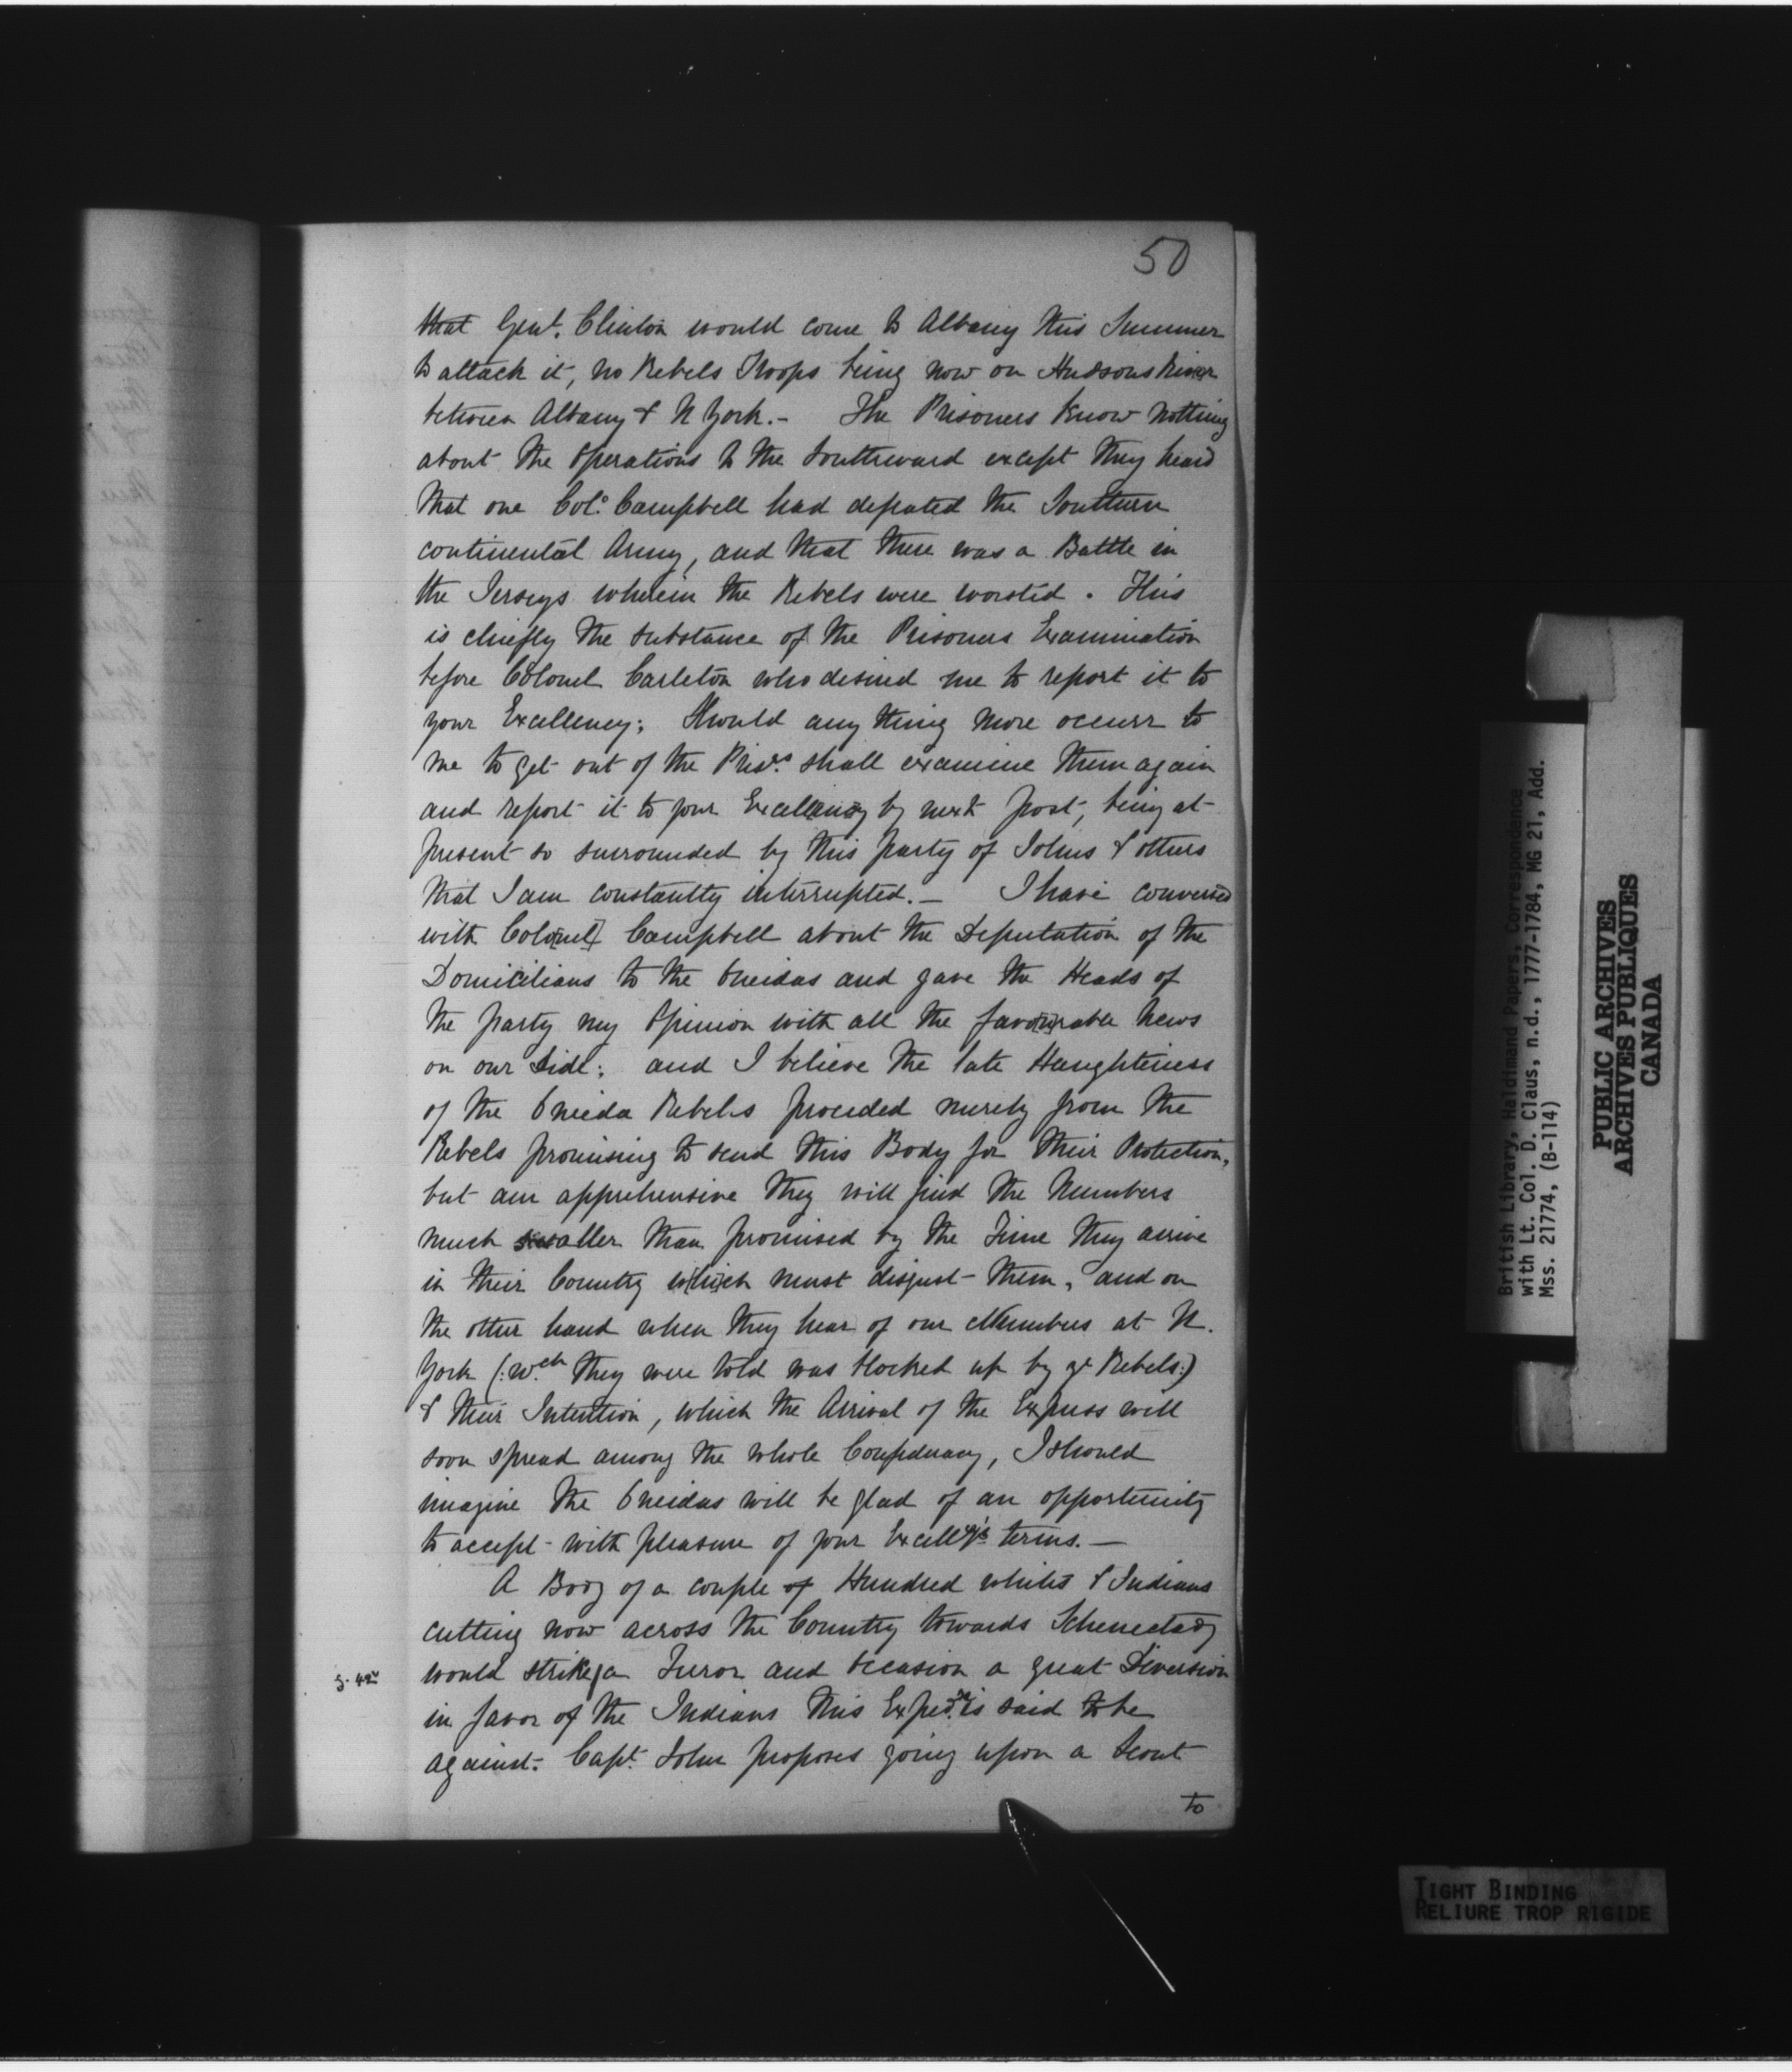 50
that Genl. Clinton would come to Albany this Summer
to attack it, no Rebels Troops being now on Hudsons River
between Albany & N York.- The Prisoners know nothing
about the Operations to the Southward except they heard
that one Colo. Campbell had defeated the Southern
continental Army, and that there was a Battle in
the Jerseys wherein the Rebels were worsted. This
is chiefly the substance of the Prisoners Examination
before Colonel Carleton who desired me to report it to
your Excellency; Should any thing more occurr to
me to get out of the Prisrs. shall examine them again
and report it to your Excellency by next post, being at
present so surrounded by this party of Johns & others
that I am constantly interrupted.- I have conversed
with Colo[nel] Campbell about the Deputation of the
Domicilians to the Oneidas and gave the Heads of
the party my Opinion with all the favo[u]rable News
on our Side; and I believe the late Haughtiness
of the Oneida Rebels proceeded merely from the
Rebels promising to send this Body for their Protection,
but am apprehensive they will find the Numbers
much smaller than promised by the Time they arrive
in their Country w[hi]ch must disgust them, and on
the other hand when they hear of our Numbers at N.
York (:wch. they were told was blocked up by ye Rebels:)
& their Intention, which the Arrival of the Express will
soon spread among the whole Confederacy, I should
imagine the Oneidas will be glad of an opportunity
to accept with pleasure of your Excellcy's terms.—
A Body of a couple of Hundred whites & Indians
cutting now across the Country towards Schenectady
would strike a Terror and occasion a great Diversion
in favor of the Indians this Expedn. is said to be
against. Capt. John proposes going upon a Scout
to
British Library, Haldimand Papers, Correspondence
with Lt. Col. D. Claus, n.d., 1777-1784, MG 21, Add.
Mss. 21774, (B-114)
PUBLIC ARCHIVES
ARCHIVES PUBLIQUES
CANADA
TIGHT BINDING
RELIURE TROP RIGIDE